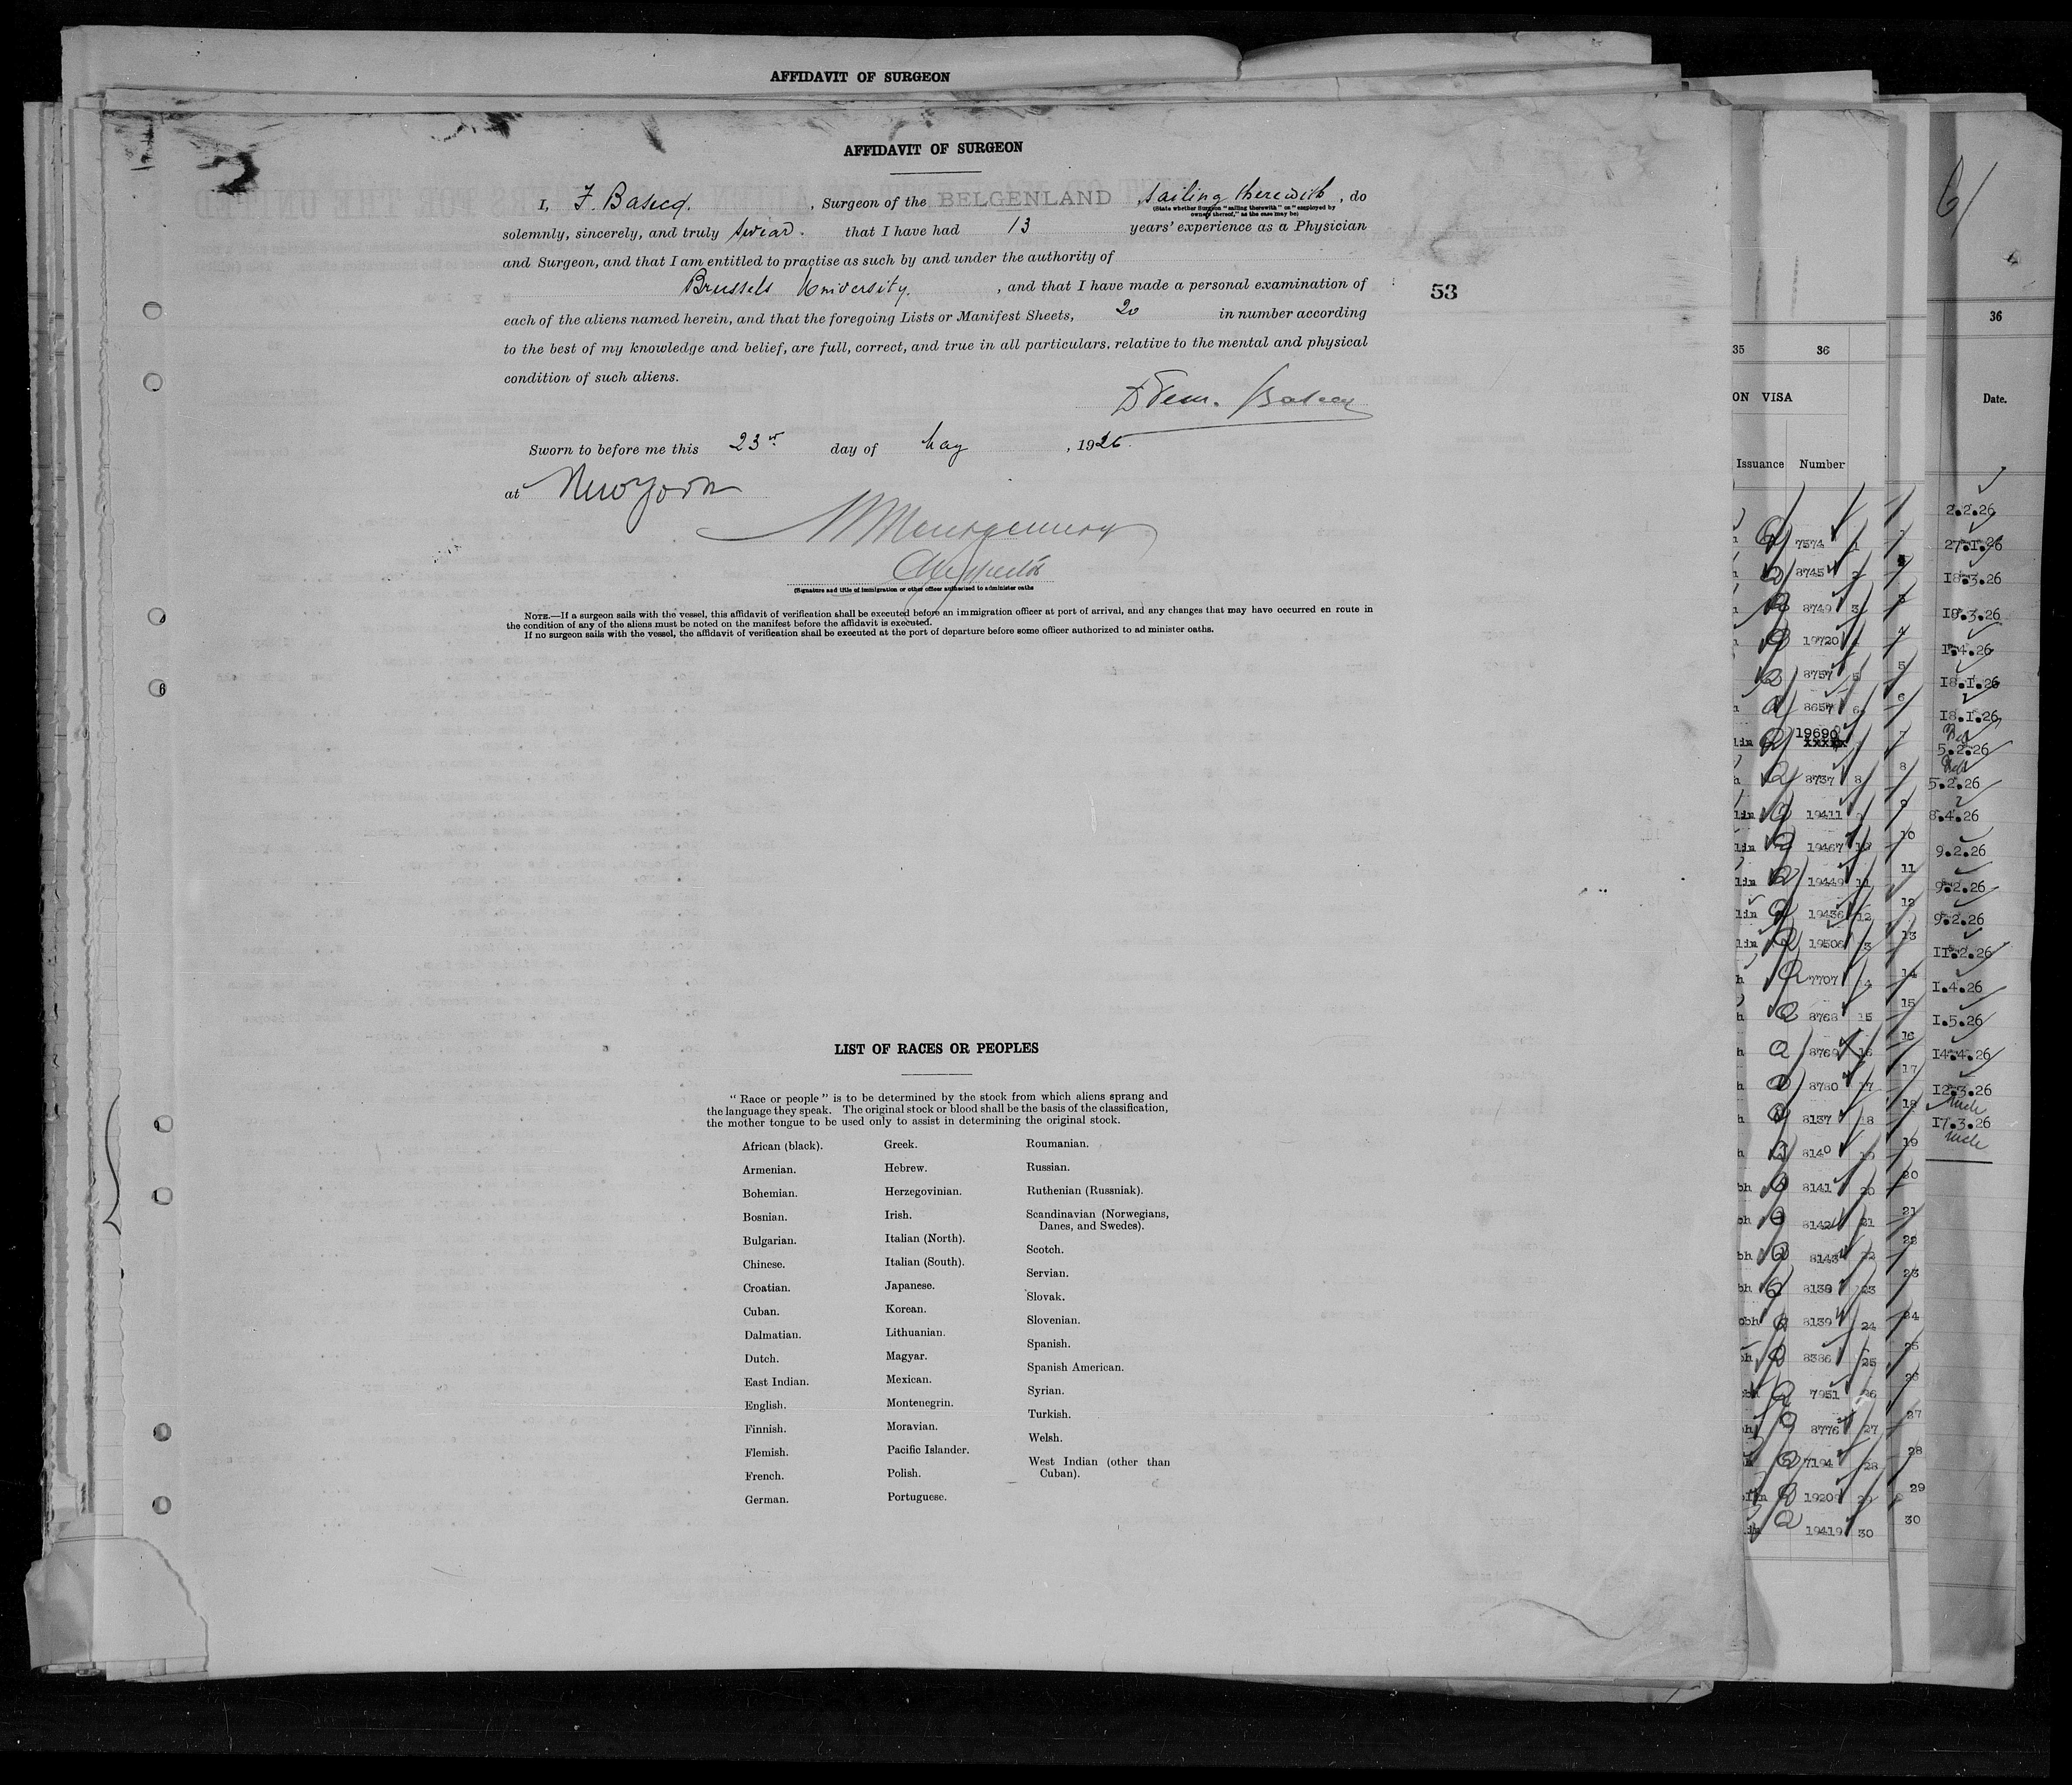 AFFIDAVIT OF SURGEON
AFFIDAVIT OF SURGEON
I, F. Basecq. , Surgeon of the BELGENLAND sailing therewith , do
(State whether Surgeon "sailing therewith" or "employed by
owners thereof," as the case may be)
solemnly, sincerely, and truly swear. that I have had 13 years' experience as a Physician
and Surgeon, and that I am entitled to practise as such by and under the authority of
Brussels University. , and that I have made a personal examination of
53
each of the aliens named herein, and that the foregoing Lists or Manifest Sheets, 20 in number according
to the best of my knowledge and belief, are full, correct, and true in all particulars, relative to the mental and physical
condition of such aliens.
Sworn to before me this 23 day of May , 1926.
at New York
Montgomery
(Signature and title of immigration or other officer authorized to administer oaths
NOTE.—If a surgeon sails with the vessel, this affidavit of verification shall be executed before an immigration officer at port of arrival, and any changes that may have occurred en route in
the condition of any of the aliens must be noted on the manifest before the affidavit is executed.
If no surgeon sails with the vessel, the affidavit of verification shall be executed at the port of departure before some officer authorized to ad minister oaths.
LIST OF RACES OR PEOPLES
" Race or people " is to be determined by the stock from which aliens sprang and
the language they speak. The original stock or blood shall be the basis of the classification,
the mother tongue to be used only to assist in determining the original stock.
African (black).
Armenian.
Bohemian.
Bosnian.
Bulgarian.
Chinese.
Croatian.
Cuban.
Dalmatian.
Dutch.
East Indian.
English.
Finnish.
Flemish.
French.
German.
Greek.
Hebrew.
Herzegovinian.
Irish.
Italian (North).
Italian (South).
Japanese.
Korean.
Lithuanian.
Magyar.
Mexican.
Montenegrin.
Moravian.
Pacific Islander.
Polish.
Portuguese.
Roumanian.
Russian.
Ruthenian (Russniak).
Scandinavian (Norwegians,
Danes, and Swedes).
Scotch.
Servian.
Slovak.
Slovenian.
Spanish.
Spanish American.
Syrian.
Turkish.
Welsh.
West Indian (other than
Cuban).
35 36
ON VISA
Issuance Number
7574 1
8745 2
8749 3
19720 4
8757 5
8657 6
19690
8737 8
19411 9
19467 10
19449 11
19436 12
19506 13
7707 14
8768 15
8769 16
8780 17
8137 18
8140 19
8141 20
8142 21
8143 22
8138 23
8139 24
8386 25
7951 26
8776 27
7194 28
19208 29
19419 30
4
5
6
7
8
9
10
11
12
13
14
15
16
17
18
19
20
21
22
23
24
25
26
27
28
29
30
61
36
Date.
2.2.26
27.1.26
18.3.26
18.3.26
1.4.26
18.1.26
18.1.26
5.2.26
5.2.26
8.4.26
9.2.26
9.2.26
9.2.26
11.2.26
1.4.26
1.5.26
14.4.26
12.3.26
17.3.26